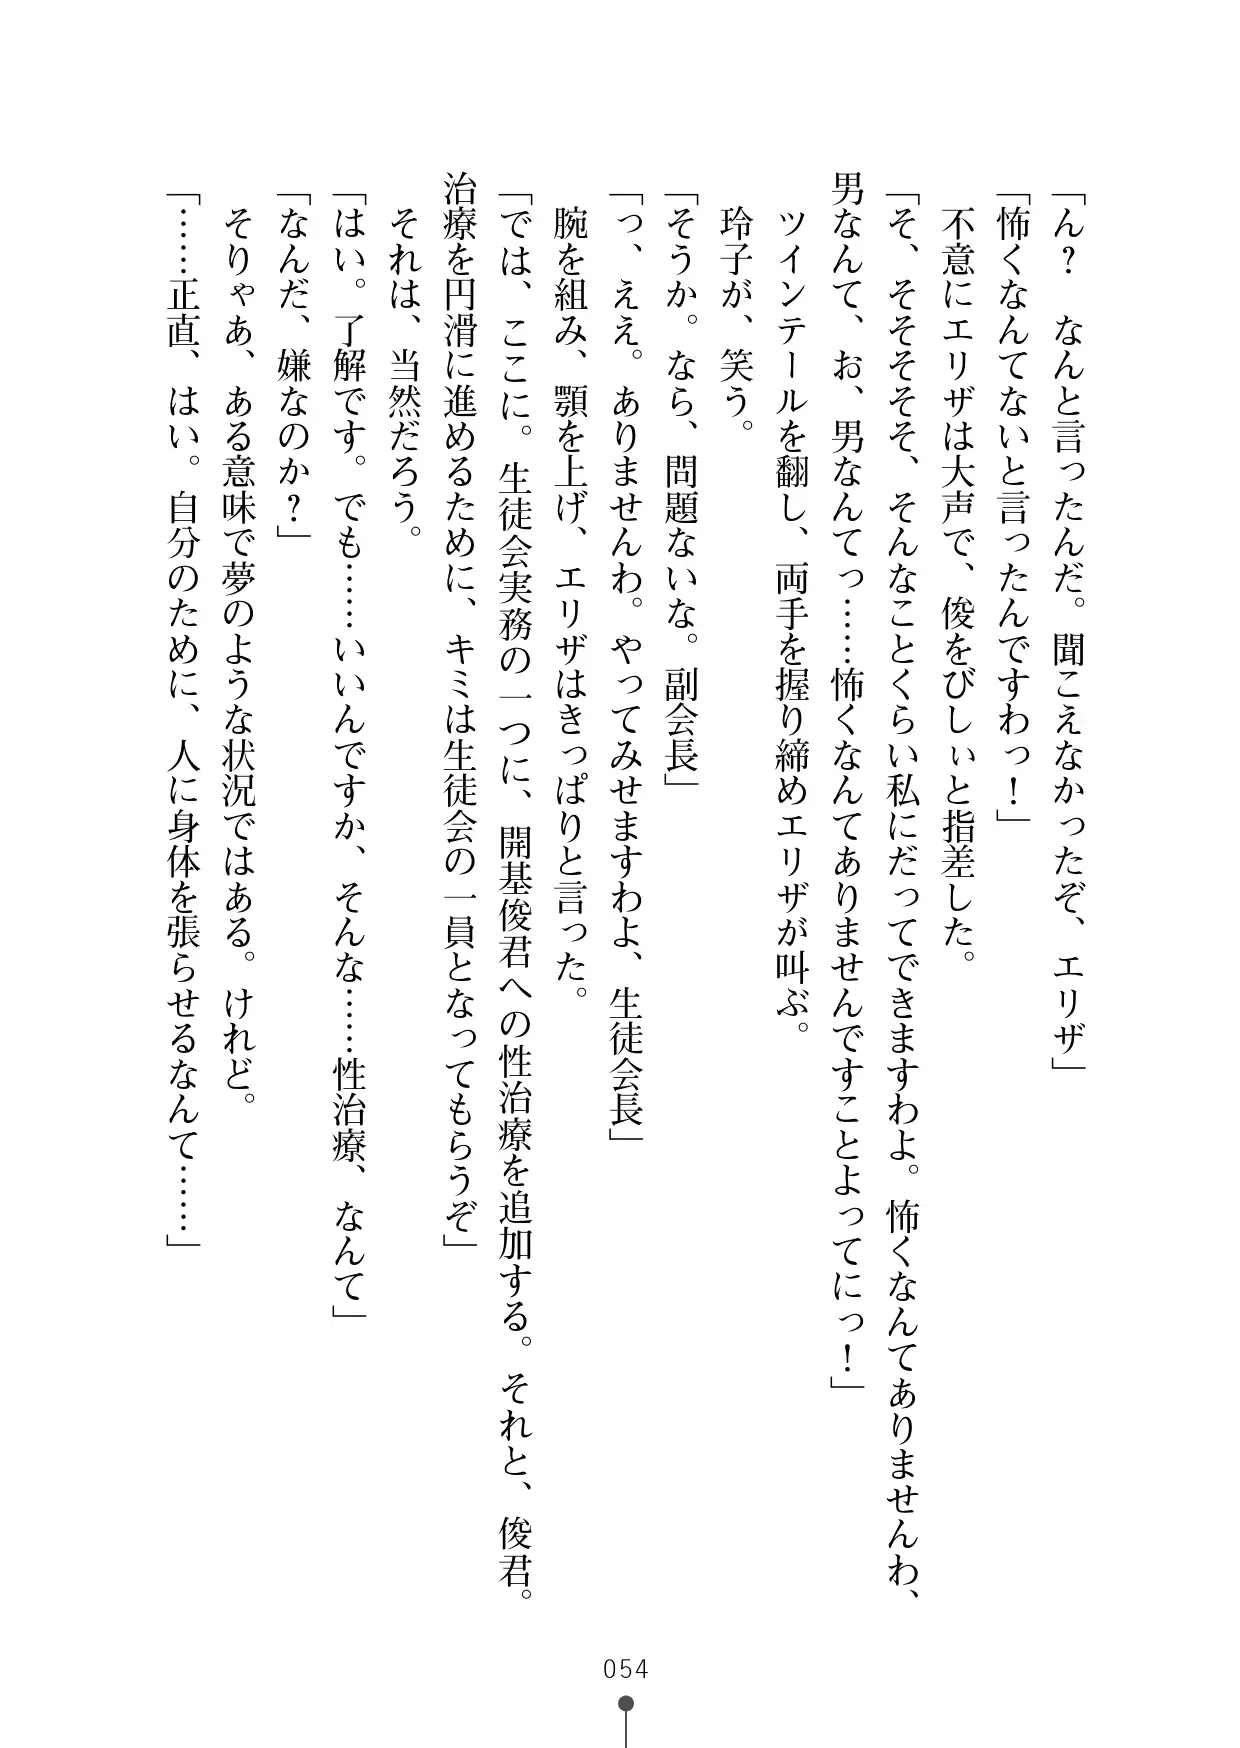 「ん？　なんと言ったんだ。聞こえなかったぞ、エリザ」
「怖くなんてないと言ったんですわっ！」
　不意にエリザは大声で、俊をびしぃと指差した。
「そ、そそそそそ、そんなことくらい私にだってできますわよ。怖くなんてありませんわ、
男なんて、お、男なんてっ……怖くなんてありませんですことよってにっ！」
　ツインテールを翻し、両手を握り締めエリザが叫ぶ。
　玲子が、笑う。
「そうか。なら、問題ないな。副会長」
「っ、ええ。ありませんわ。やってみせますわよ、生徒会長」
　腕を組み、顎を上げ、エリザはきっぱりと言った。
「では、ここに。生徒会実務の一つに、開基俊君への性治療を追加する。それと、俊君。
治療を円滑に進めるために、キミは生徒会の一員となってもらうぞ」
　それは、当然だろう。
「はい。了解です。でも……いいんですか、そんな……性治療、なんて」
「なんだ、嫌なのか？」
　そりゃあ、ある意味で夢のような状況ではある。けれど。
「……正直、はい。自分のために、人に身体を張らせるなんて……」
054